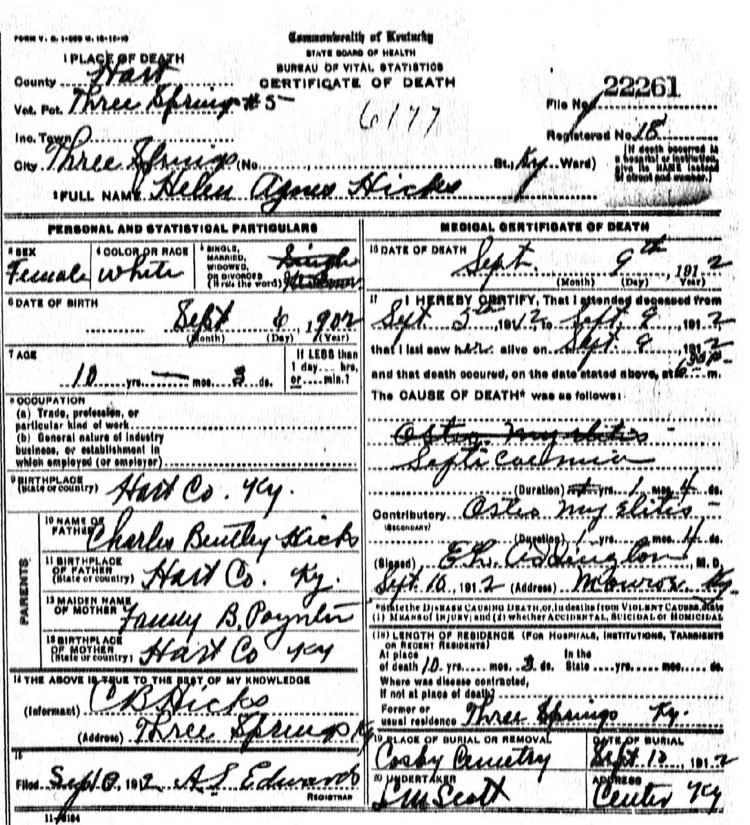 FORM V. S. 1-
Commonwealth of Kentucky
STATE BOARD OF HEALTH
BUREAU OF VITAL STATISTICS
CERTIFICATE OF DEATH
1 PLACE OF DEATH
County Hart
Vot. Pct. Three Springs #5
6177
File No. 22261
Inc. Town
Registered No. 18
City Three Springs (No. St., Ky Ward)
(If death occurred in a hospital or institution, give its NAME instead of street and number.)
2 FULL NAME Helen Agnes Hicks
PERSONAL AND STATISTICAL PARTICULARS
3 SEX
Female
4 COLOR OR RACE
White
5 SINGLE, MARRIED, WIDOWED, OR DIVORCED (Write the word)
Single
6 DATE OF BIRTH
Sept 6, 1902
(Month) (Day) (Year)
7 AGE
10 yrs. — mos. 3 ds.
If LESS than 1 day.... hrs, or.... min.?
8 OCCUPATION
(a) Trade, profession, or
particular kind of work
(b) General nature of industry
business, or establishment in
which employed (or employer)
9 BIRTHPLACE
(State or country) Hart Co. Ky.
PARENTS
10 NAME OF
FATHER Charles Bentley Hicks
11 BIRTHPLACE
OF FATHER
(State or country) Hart Co. Ky.
12 MAIDEN NAME
OF MOTHER Fanny B. Poynter
13 BIRTHPLACE
OF MOTHER
(State or country) Hart Co Ky
14 THE ABOVE IS TRUE TO THE BEST OF MY KNOWLEDGE
(Informant) C B Hicks
(Address) Three Springs Ky
15
Filed Sept 1912 A S Edwards
REGISTRAR
MEDICAL CERTIFICATE OF DEATH
16 DATE OF DEATH
Sept. 9th, 1912
(Month) (Day) Year)
17 I HEREBY CERTIFY, That I attended deceased from
Sept 5th 1912 to Sept. 9 1912
that I last saw her alive on Sept. 9 1912
and that death occured, on the date stated above, at m.
The CAUSE OF DEATH* was as follows:
Osteo myelitis
Septicaemia
(Duration) yrs. 1 mos. 4 ds.
Contributory Osteo myelitis
(SECONDARY)
(Duration) yrs. 1 mos. 4 ds.
(Signed) E L Addington M. D.
Sept. 10, 1912 (Address) Monroe Ky.
*State the DISEASE CAUSING DEATH, or, in deaths from VIOLENT CAUSES, state
(1) MEANS of INJURY; and (2) whether ACCIDENTAL, SUICIDAL or HOMICIDAL
(18) LENGTH OF RESIDENCE (FOR HOSPITALS, INSTITUTIONS, TRANSIENTS
OR RECENT RESIDENTS)
At place
of death 10 yrs. mos. 3 ds.
In the
State yrs. mos. ds.
Where was disease contracted,
if not at place of death?
Former or
usual residence Three Springs Ky.
19 PLACE OF BURIAL OR REMOVAL
Cosby Cemetry
DATE OF BURIAL
Sept 10, 1912
20 UNDERTAKER
L M Scott
ADDRESS
Center Ky